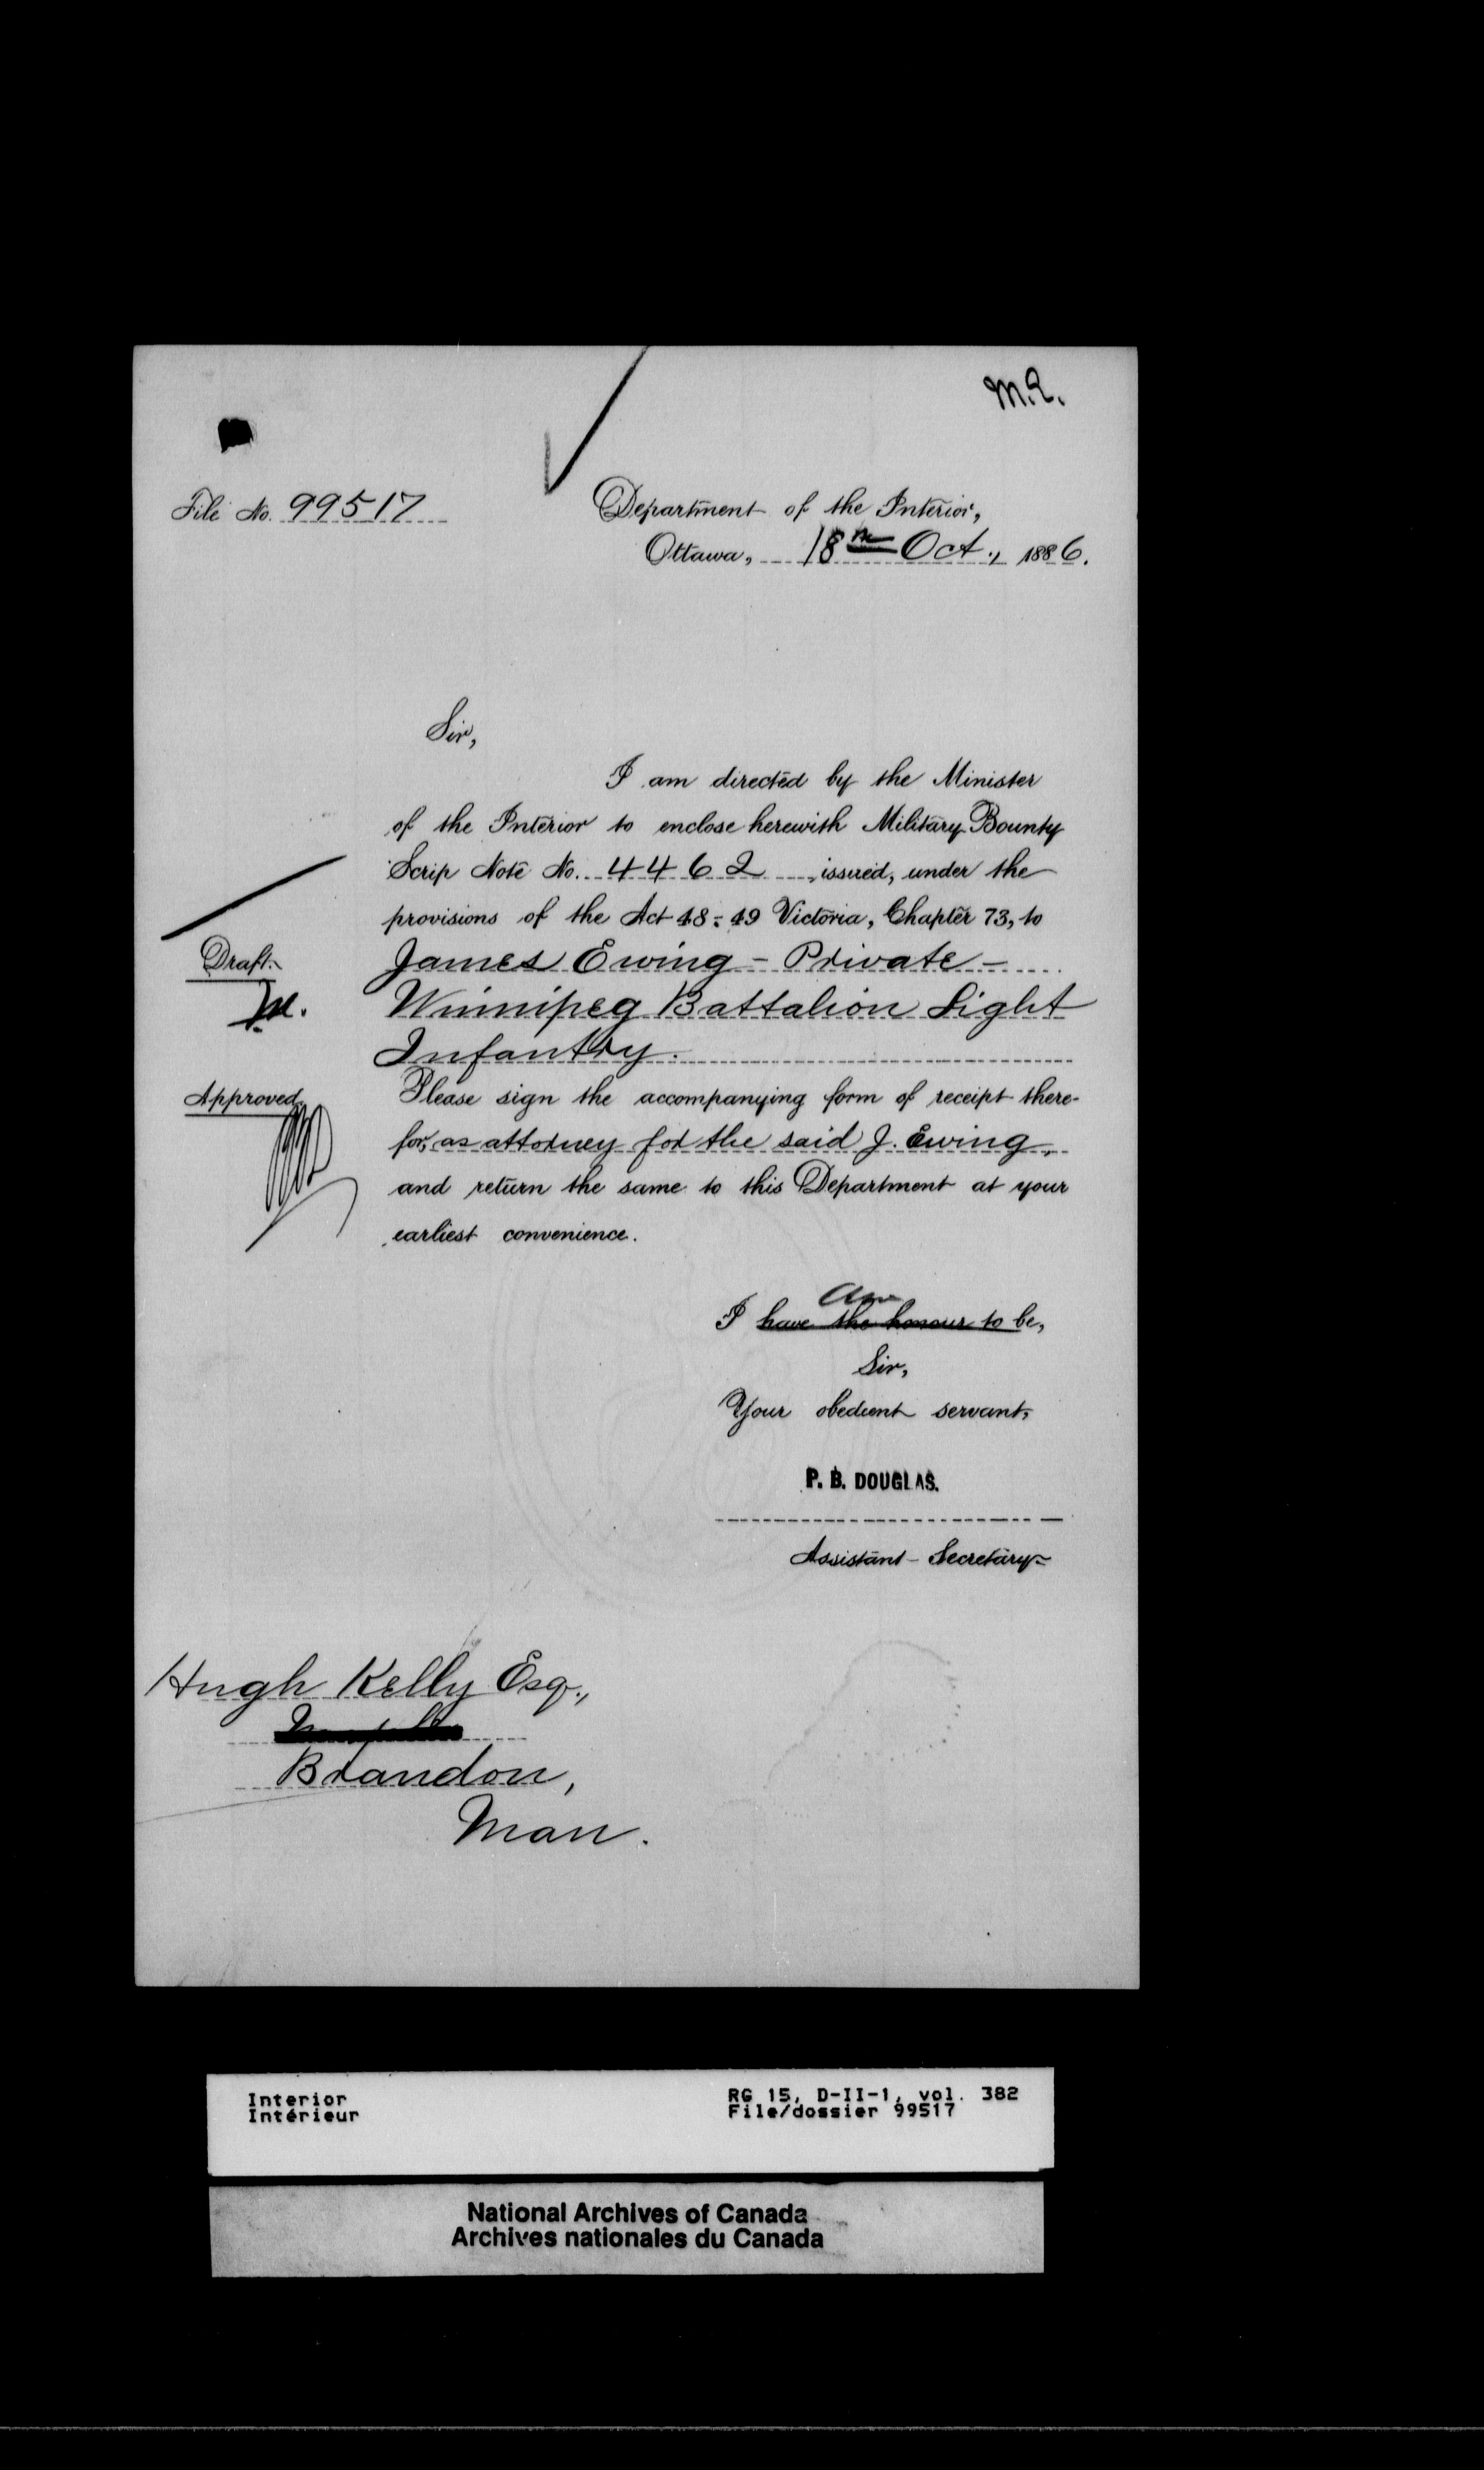 M.R.
File No. 99517
Department of the Interior,
Ottawa, 18th Oct., 1886.
Sir,
I am directed by the Minister
of the Interior to enclose herewith Military Bounty
Scrip Note No. 4462 issued, under the
provisions of the Act 48-49 Victoria, Chapter 73, to
Draft.
James Ewing - Private -
Winnipeg Battalion Light
Infantry.
Approved
Please sign the accompanying form of receipt there-
for, as attorney for the said J. Ewing,
and return the same to this Department at your
earliest convenience.
am
I have the honour to be,
Sir,
Your obedient servant,
P. B. DOUGLAS.
Assistant Secretary
Hugh Kelly Esq.,
Brandon,
Man.
Interior
Intérieur
RG 15, D-II-1, vol. 382
File/dossier 99517
National Archives of Canada
Archives nationales du Canada